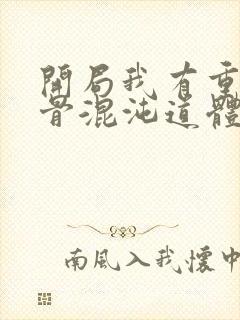 開局我有重
骨混沌道體
南風入我懷中